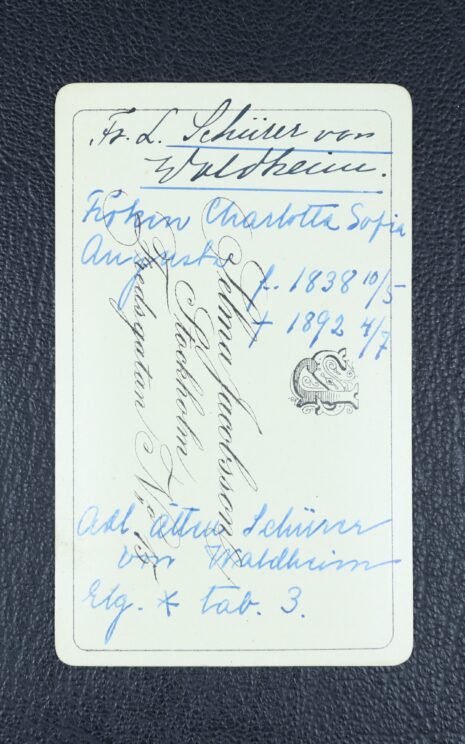 Fr. L. Schürer von
Waldheim.
Fröken Charlotta Sofia
Augusta
f. 1838 10/5
† 1892 4/7
Selma Jacobsson
Stockholm
Fredsgatan No 15
Adl. ätten Schürer
von Waldheim
Elg. tab. 3.